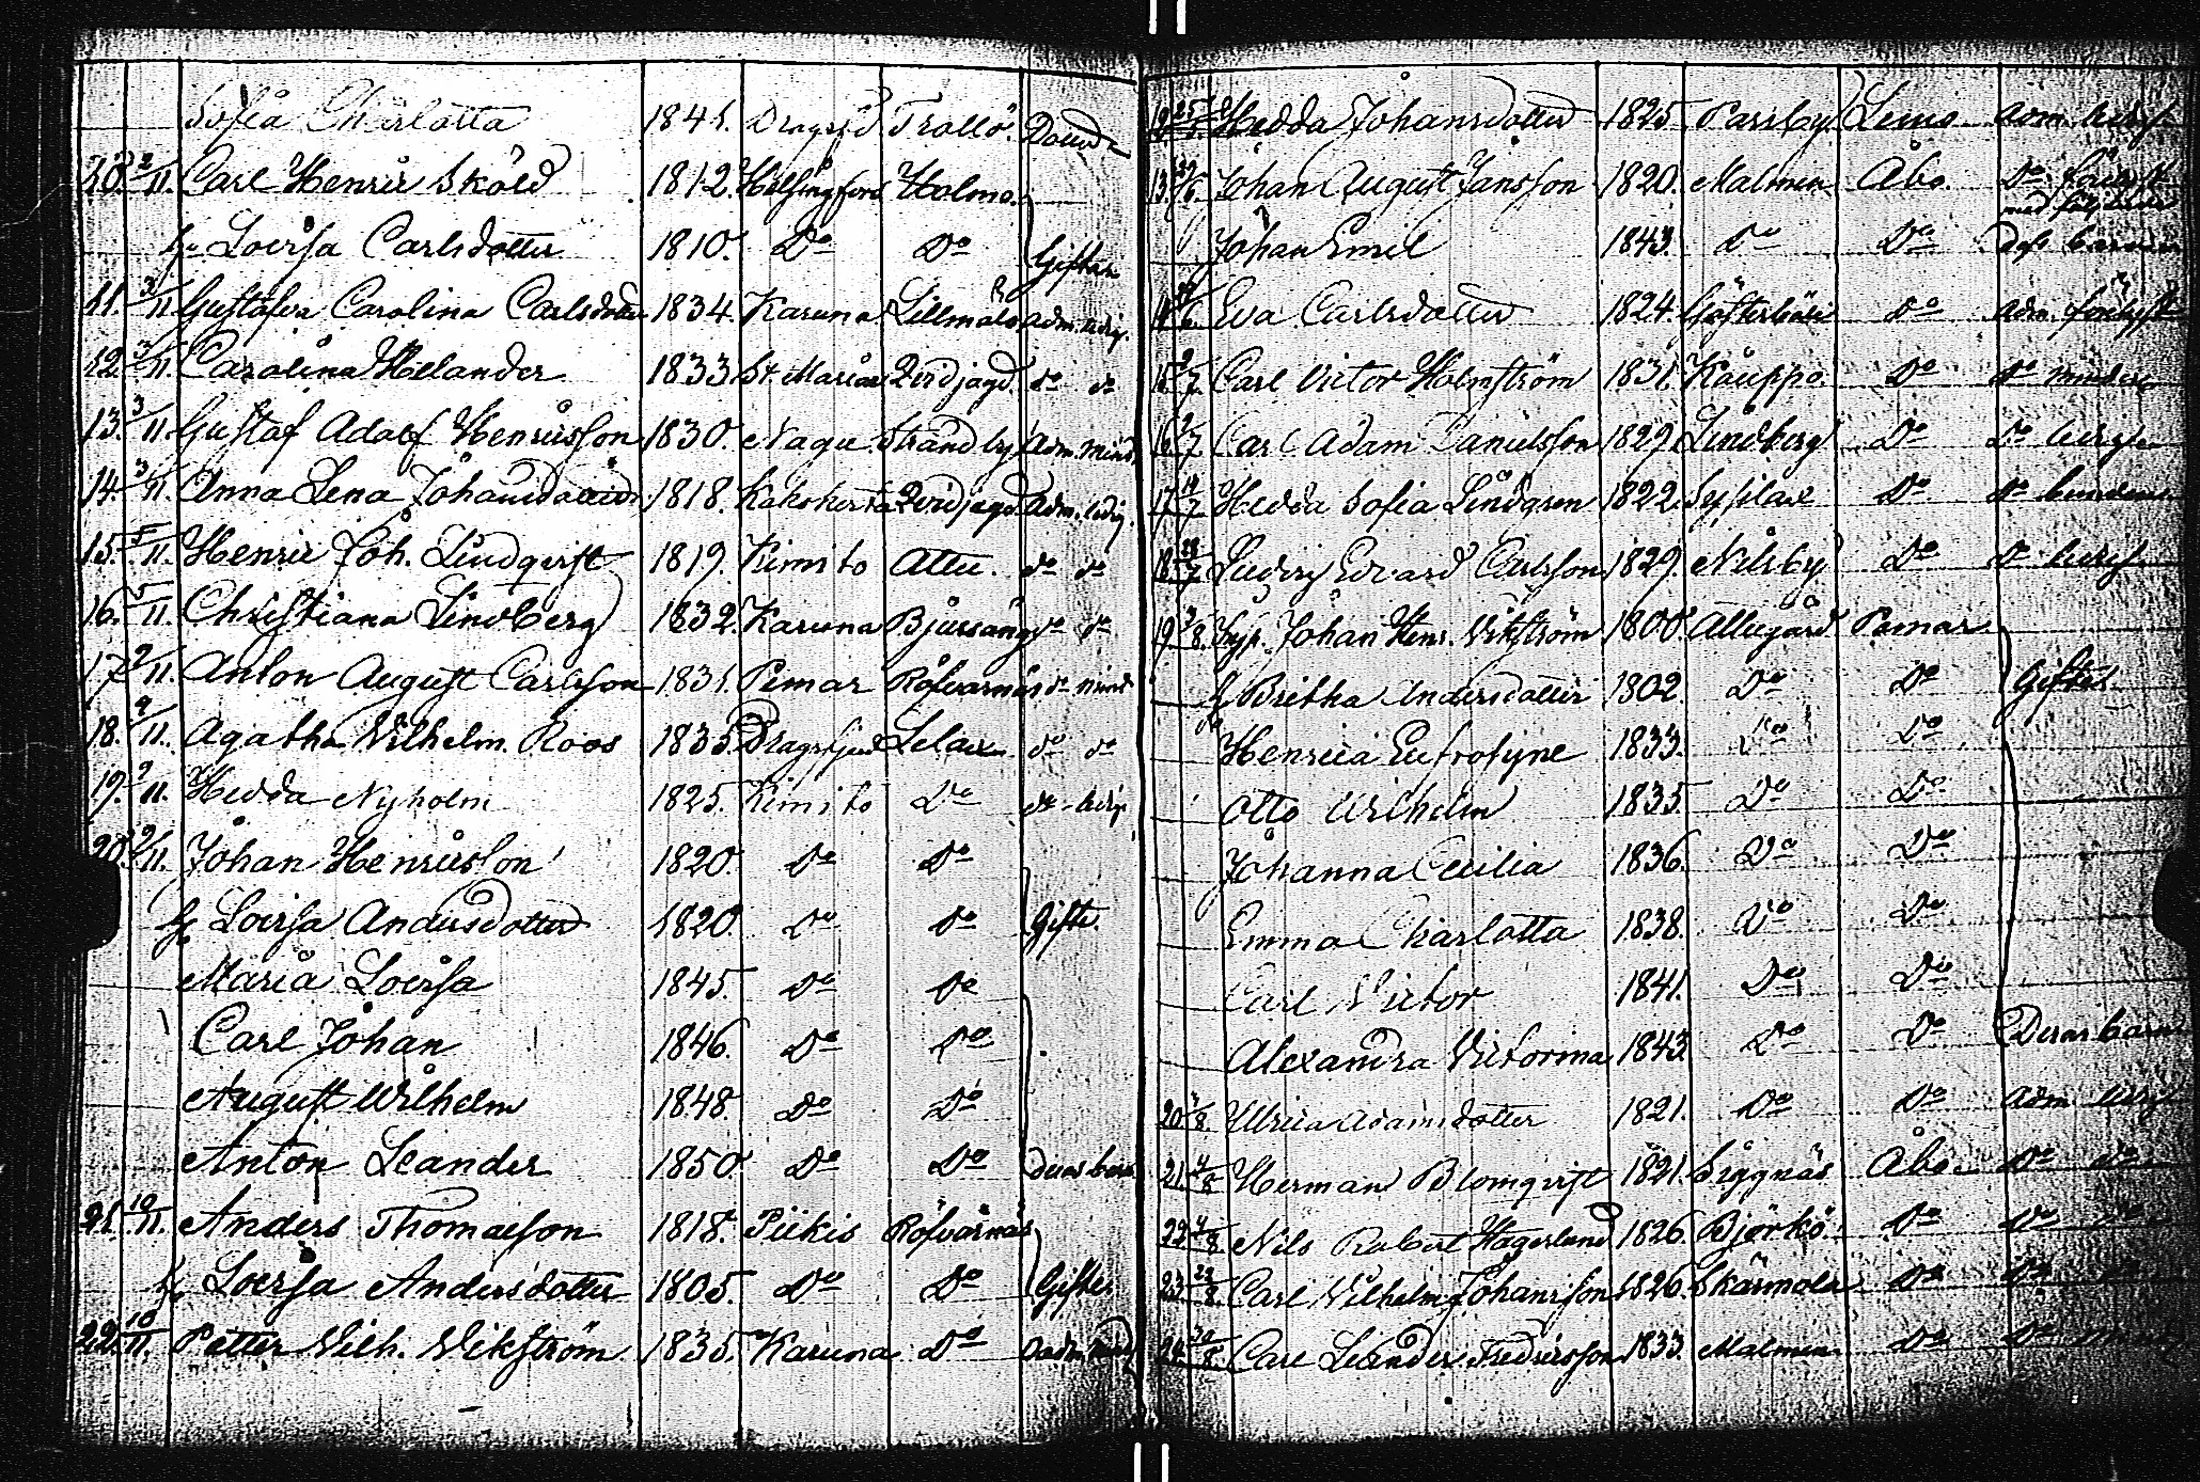 Sofia Charlotta 1841. Dragsfj. Trollö.
10. 2/11. Carl Henric Sköld 1812. Helsingfors Holmo.
h. Lovisa Carlsdotter 1810. Do Do Giftas
11. 3/11 Gustafva Carolina Carlsdotter 1834. Karuna Lillmälö adm. ledig.
12. 3/11 Carolina Helander 1833 St. Mariae Qvidjagd. do do
13. 3/11. Gustaf Adolf Henricsson 1830. Nagu Strandby Adm. mind.
14. 3/11. Anna Lena Johansdotter 1818. Kakskerta Qvidjagd Adm. ledig.
15. 5/11. Henric Joh. Lindqvist 1819. Kimito Attu. do do
16. 5/11. Christiana Lindberg 1832. Karuna Bjursäng do do
17. 9/11. Anton August Carlsson 1831. Pemar Röfvarnäs do mind.
18. 9/11. Agatha Vilhelm. Roos 1835. Dragsfjerd Lelax do do
19. 9/11. Hedda Nyholm 1825. Kimito Do do ledig
20. 9/11. Johan Henricsson 1820. Do Do
h. Lovisa Andersdotter 1820. Do Do Gifte.
Maria Lovisa 1845. Do Do
Carl Johan 1846. Do Do
August Wilhelm 1848. Do Do
Anton Leander 1850. Do Do deras barn
21. 10/11. Anders Thomasson 1818. Piikis Röfvarnäs
h. Lovisa Andersdotter 1805. Do Do Gifte.
22. 10/11. Petter Vilh. Wikström 1835. Karuna Do adm. mind
12. Hedda Johansdotter 1825. Parsby Lemo Adm. ledig
13. Johan August Jansson 1820. Malmen Åbo. Do
Johan Emil 1843. Do Do dess barn
14. Eva Carlsdotter 1824. Do Adm.
15. 9/7 Carl Victor Holmström 1831. Kauppo. Do Do minderig
16. 9/7 Carl Adam Danielsson 1829. Lindberg Do Do ledig
17. 19/7 Hedda Sofia Lindgren 1822. Sysilax Do Do
18. 28/7 Ludvig Edvard Carlsson 1829. Nilsby Do Do ledig
19. 3/8. Johan Henr. Wikström 1800. Allegård Pemar
h. Britha Andersdotter 1802. Do Do Giftas
Henrica Eufrosyne 1833. Do Do
Otto Wilhelm 1835. Do Do
Johanna Cecilia 1836. Do Do
Emma Charlotta 1838. Do Do
Carl Victor 1841. Do Do
Alexandra Victorina 1843. Do Do Deras barn
20. /8. Ulrica Adamsdotter 1821. Do Do adm. ledig
21. 4/8 Herman Blomqvist 1821. Siggnäs Åbo Do do
22. 4/8 Nils Robert Hägerlund 1826. Björkö. Do Do
23. 22/8 Carl Vilhelm Johansson 1826. Skärmola Do Do
24. 30/8 Carl Leander Fredricsson 1833. Malmen Do Do